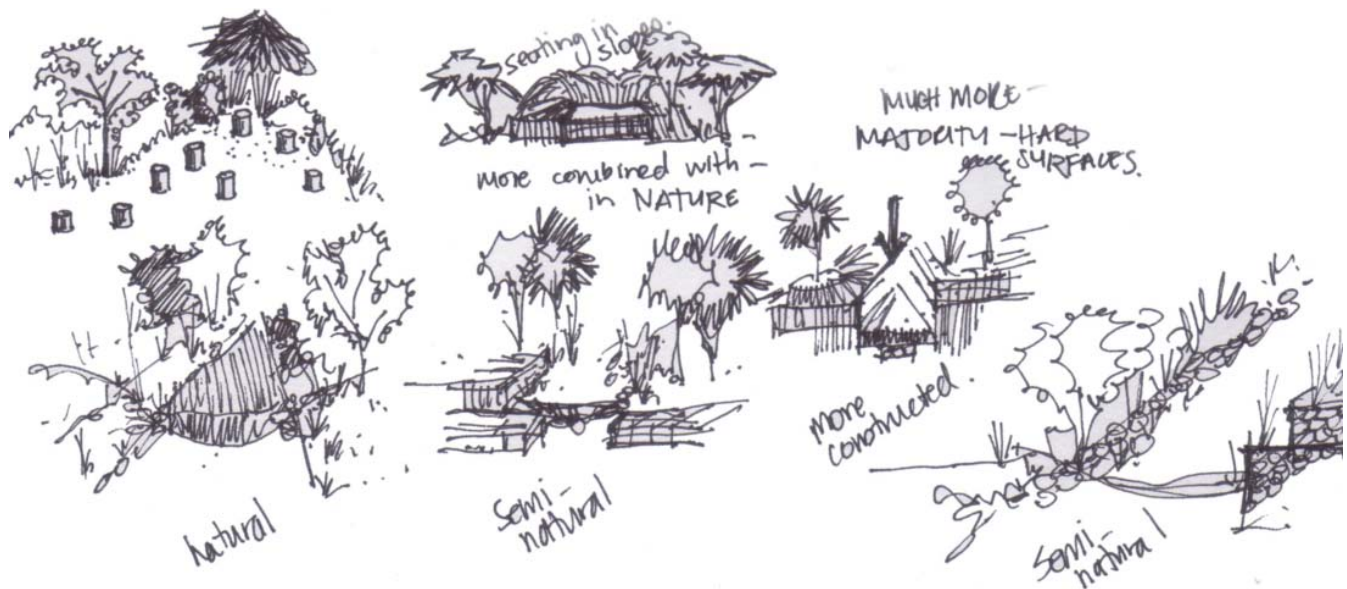 seating in
slope.
more combined with -
in NATURE
MUCH MORE -
MAJORITY - HARD
SURFACES.
more
constructed.
natural
semi-
natural
semi-
natural